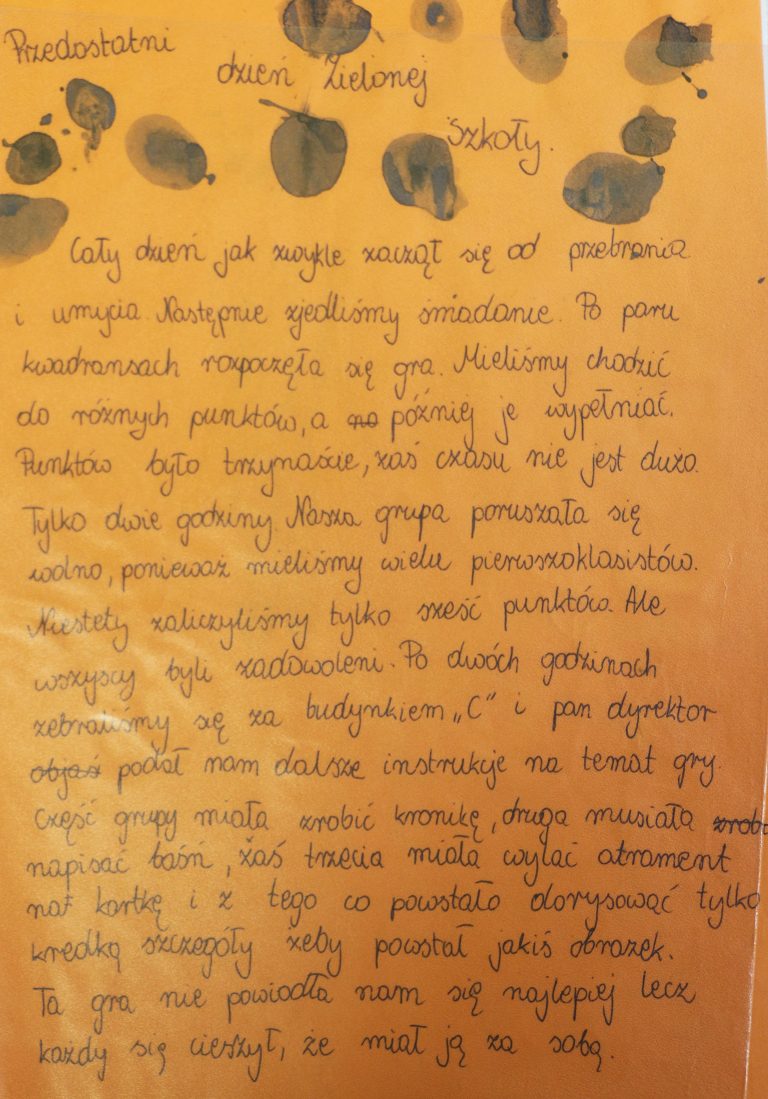 Przedostatni
dzień Zielonej
Szkoły.
Cały dzień jak zwykle zaczął się od przebrania
i umycia. Następnie zjedliśmy śniadanie. Po paru
kwadransach rozpoczęła się gra. Mieliśmy chodzić
do różnych punktów, a no później je wypełniać.
Punktów było trzynaście, zaś czasu nie jest dużo.
Tylko dwie godziny. Nasza grupa poruszała się
wolno, ponieważ mieliśmy wielu pierwszoklasistów.
Niestety zaliczyliśmy tylko sześć punktów. Ale
wszyscy byli zadowoleni. Po dwóch godzinach
zebraliśmy się za budynkiem „C" i pan dyrektor
objaś podał nam dalsze instrukcje na temat gry.
Część grupy miała zrobić kronikę, druga musiała zrob
napisać baśń, zaś trzecia miała wylać atrament
na kartkę i z tego co powstało dorysować tylko
kredką szczegóły żeby powstał jakiś obrazek.
Ta gra nie powiodła nam się najlepiej lecz
każdy się cieszył, że miał ją za sobą.